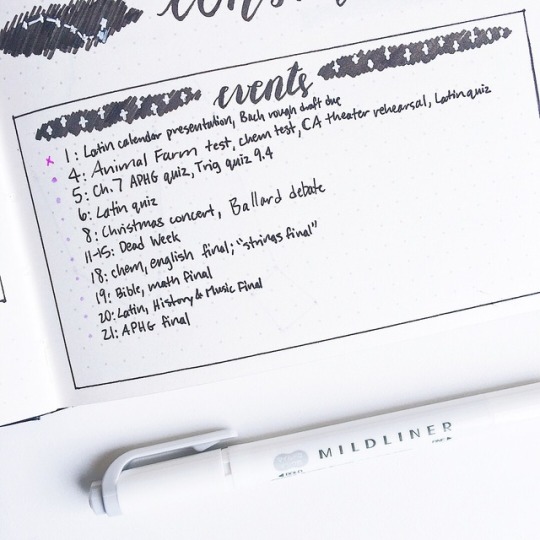 events
x 1: Latin calendar presentation, Bach rough draft due
4: Animal Farm test, chem test, CA theater rehearsal, Latin quiz
5: Ch. 7 APHG quiz, Trig quiz 9.4
6: Latin quiz
8: Christmas concert, Ballard debate
11-15: Dead Week
18: chem, english final; "strings final"
19: Bible, math final
20: Latin, History & Music Final
21: APHG final
MILDLINER